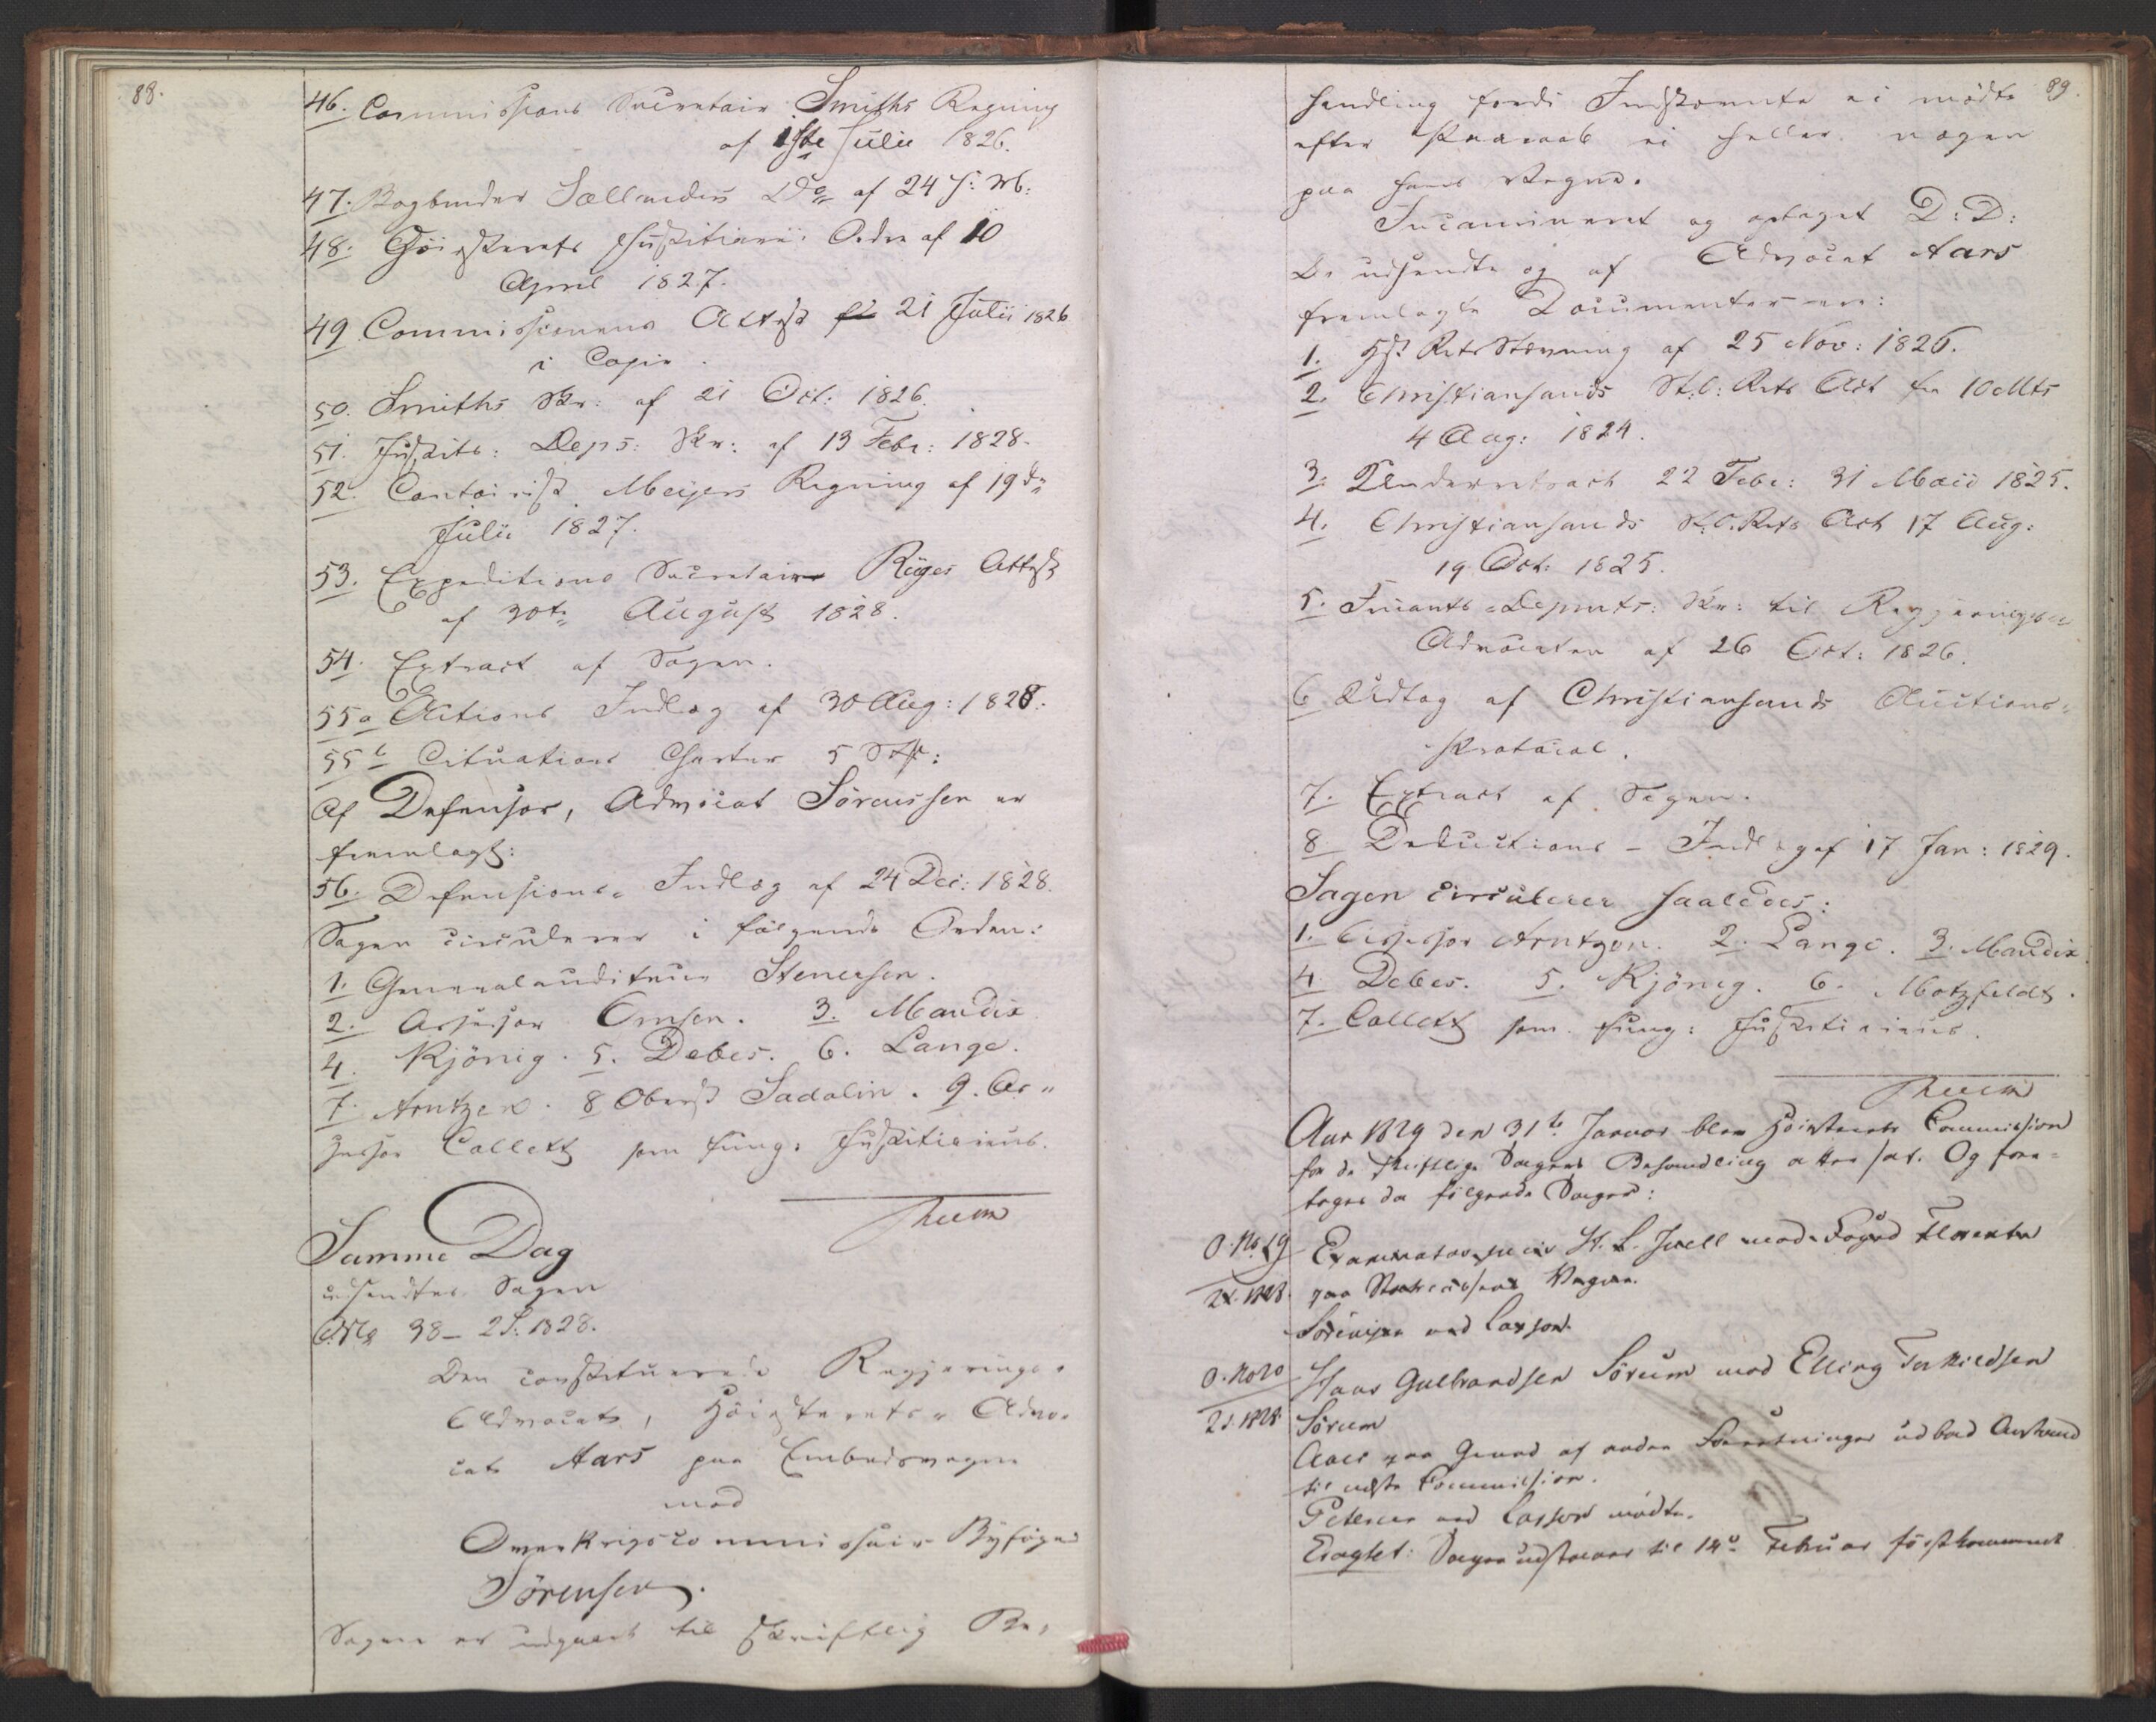 88.
46. Commissions Secretair Smiths Regning
af 1ste Julii 1826.
47. Bogbinder Sællanders Do af 24 f: M:
48. Höiesterets Justitiarii Ordre af 10
April 1827.
49 Commissionens Attest 21 Julii 1826
i Copie.
50. Smiths Skr: af 21 Oct: 1826.
51. Justits: Deps: Skr: af 13 Febr: 1828.
52. Contoirist Meijers Regning af 19de
Julii 1827.
53. Expeditions Secretair Riiges Attest
af 30te August 1828.
54. Extract af Sagen.
55a Actions Indlæg af 30 Aug: 1828.
55b Cituations Charter 5 Stk:
Af Defensor, Advocat Sörenssen er
fremlagt:
56. Defensions Indlæg af 24 Dec: 1828.
Sagen circulerer i følgende Orden:
1. Generalauditeur Stenersen.
2. Assessor Omsen. 3. Mandix
4. Kjönig. 5. Debes. 6. Lange.
7. Arntzen. 8 Oberst Sadolin. 9. As-
sessor Collett som fung: Justitiarius.
Samme Dag
udsendtes Sagen
O. No 38 - 2 S: 1828.
Den constituerede Regjerings-
Advocat, Höiesterets Advo-
cat Aars paa Embedsvegne
mod
Overkrigscommissair Byfoged
Sörensen.
Sagen er udgaaet til skriftlig Be-
89.
handling fordi Indstevnte ei mødte
efter Paaraab ei heller nogen
paa hans Vegne.
Incamineret og optaget D: D:
De udsendte og af Advocat Aars
fremlagte Documenter ere:
1. Hst RetsStevning af 25 Nov: 1826.
2. Christiansands St: O: Rets Act fra 10 Mts
4 Aug: 1824.
3. Underretsact 22 Febr: 31 Maii 1825.
4. Christiansands St: O: Rets Act 17 Aug:
19 Oct: 1825.
5. Finants-Depmts: Skr: til Regjerings-
Advocaten af 26 Oct: 1826.
6 Udtog af Christiansands Auctions-
Protocol.
7. Extract af Sagen.
8 Deductions-Indlæg af 17 Jan: 1829.
Sagen circulerer saaledes:
1. Assessor Arntzen. 2. Lange. 3. Mandix
4 Debes. 5. Kjönig. 6. Motzfeldt.
7. Collett som fung: Justitiarius.
Aar 1829 den 31te Januar blev Höiesterets Commission
for de skriftlige Sagers Behandling atter sat. Og fore-
toges da følgende Sager:
O. No 19
2 S. 1828
Examinatus juris H. L. Juell mod Foged
paa Vegne.
Sörenssen mod Lasson.
O. No 20
2 S. 1828
Hans Gulbrandsen Sörum mod Elling Terkildsen
Sörum
Aars paa Grund af andre Forretninger udbad Anstand
til næste Commission.
Petersen mod Lasson mödte.
Eragtet: Sagen udstaaer til 14de Februar førstkommende